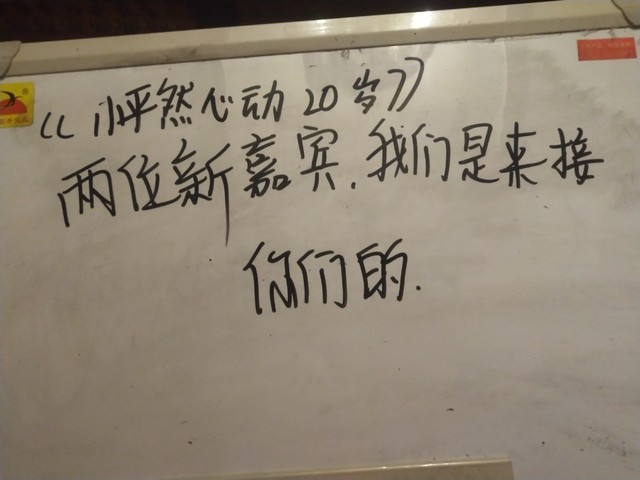 《怦然心动20岁》
两位新嘉宾.我们是来接
你们的.